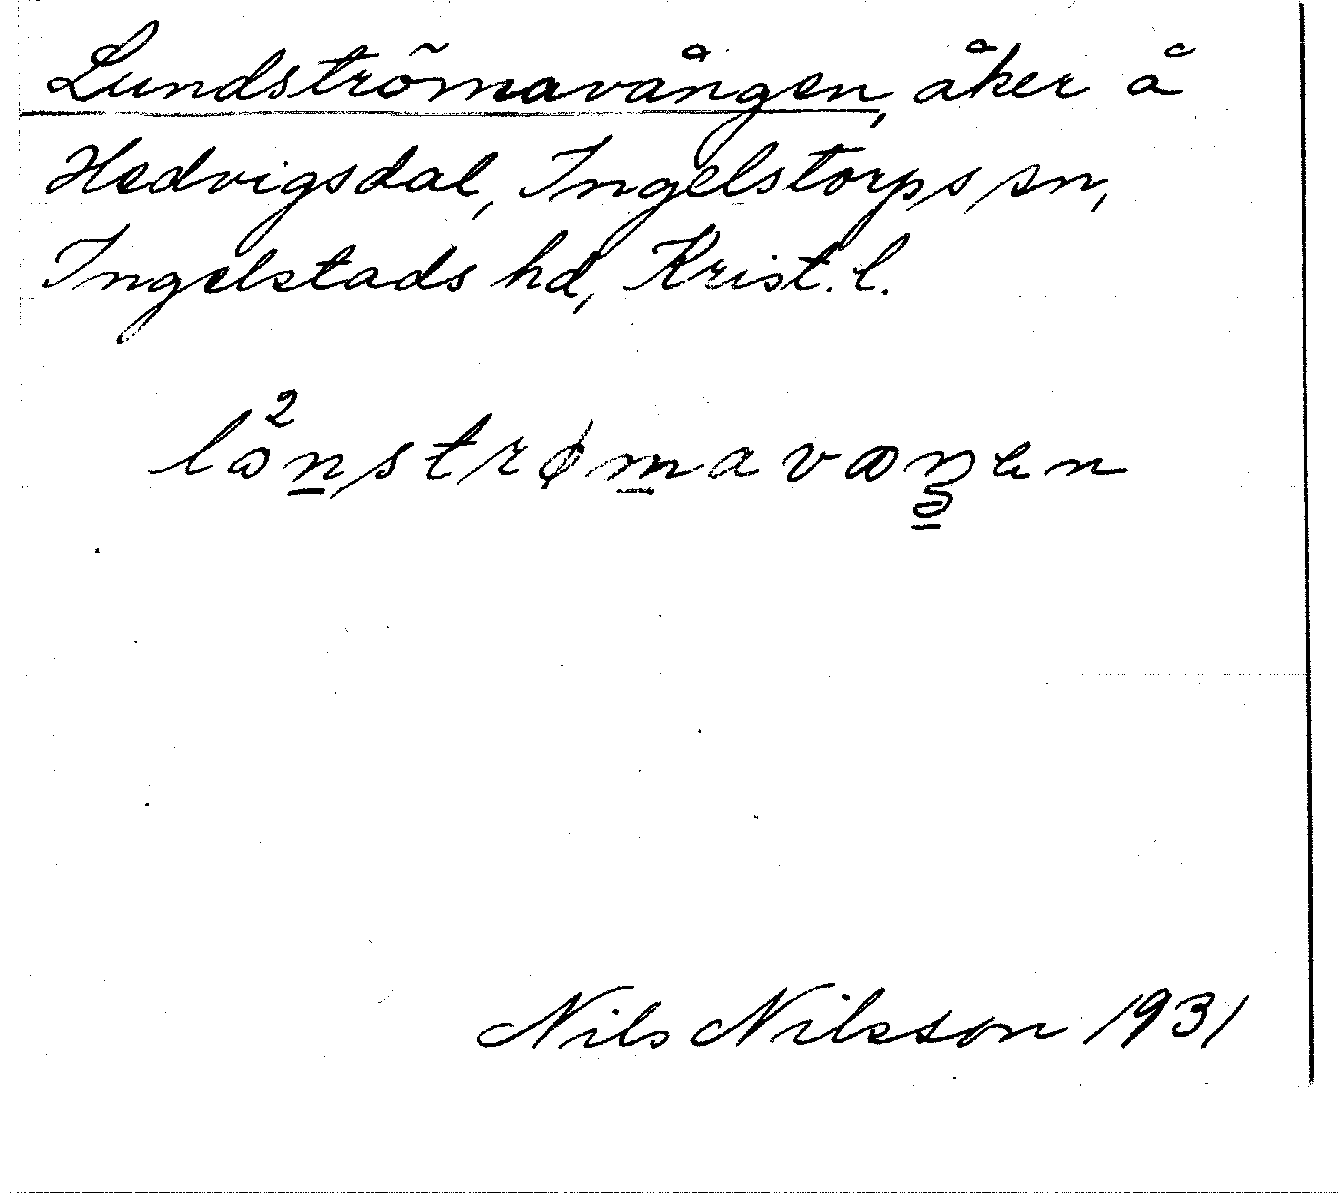 Lundströmavången, åker å
Hedvigsdal, Ingelstorps sn,
Ingelstads hd, Krist. l.
lå²n̲strøm̲avaŋ̲en
Nils Nilsson 1931